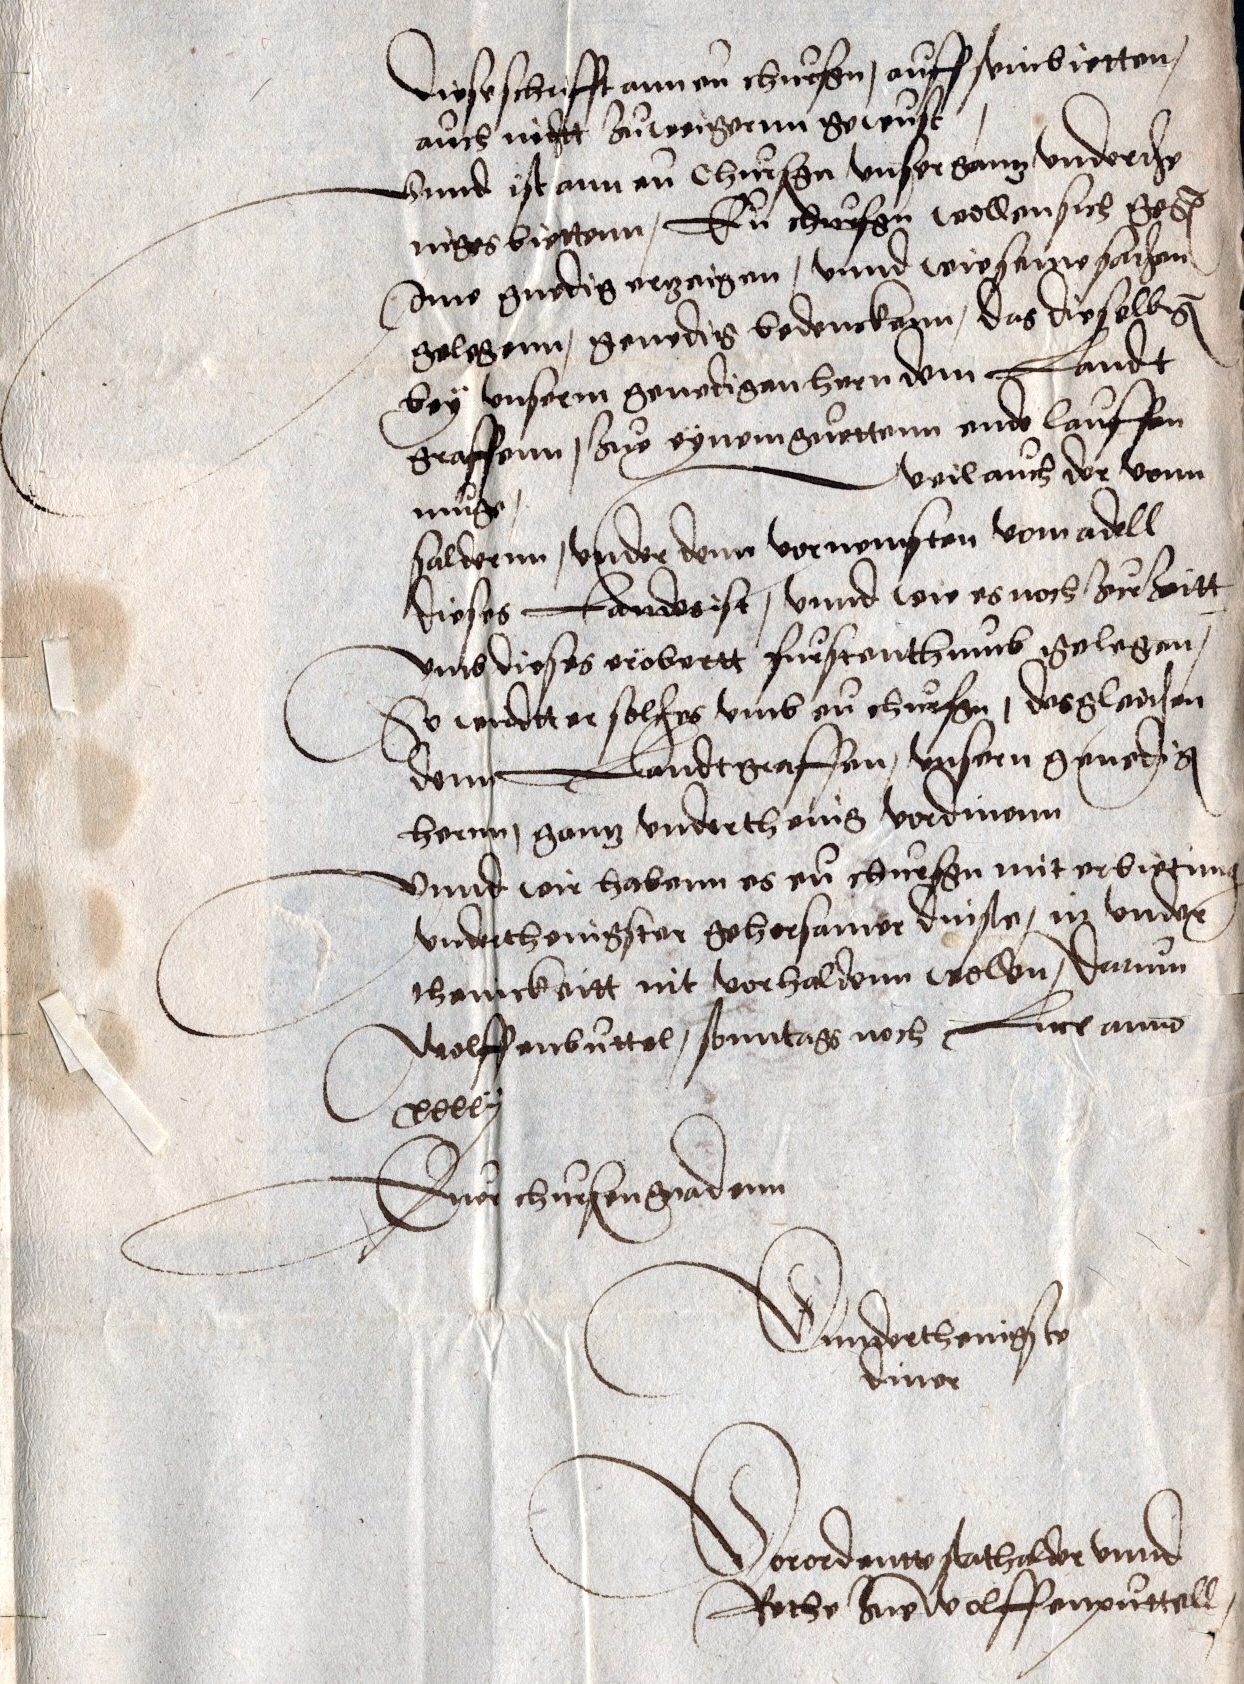 diese schrifft ann eu churfgn, auff sein bietten,
auch nicht zu weigernn gewust
Vnnd ist ann eu Churfgn vnser gantz vnderthe
niges biettenn, Eu churfgn wollen sich geg
Ime gnedig erzeigen, vnnd wie seine sachen
gelegenn, genedig bedenckenn, das dieselbig
bey vnserm genedigen hern dem Landt
graffenn, zue eynem guettenn ende lauffen
muge, Weil auch der vonn
saldernn, vnder denn vornemsten vom adell
dieses Landes ist, vnnd wie es noch zur zeitt
vmb dieses erobertt furstenthumb gelegen,
So wirdtt er solchs vmb eu churfgn, desgleichen
denn Landtgraffen, vnsern genedig
hernn, gantz vnderthenig vordinenn
Vnnd wir habenn es eu churfgn mit erbietung
vnderthenigster gehorsamer dinste, in vnder
thenickeitt nit vorhaldenn wollen, Datum
Wolffenbuttel, sonntags noch Luce anno
xlij
Euer churfen gnadenn
Vnnderthenigste
diner
Verordente stathalder vnnd
Rethe zue Wolffenputtell,